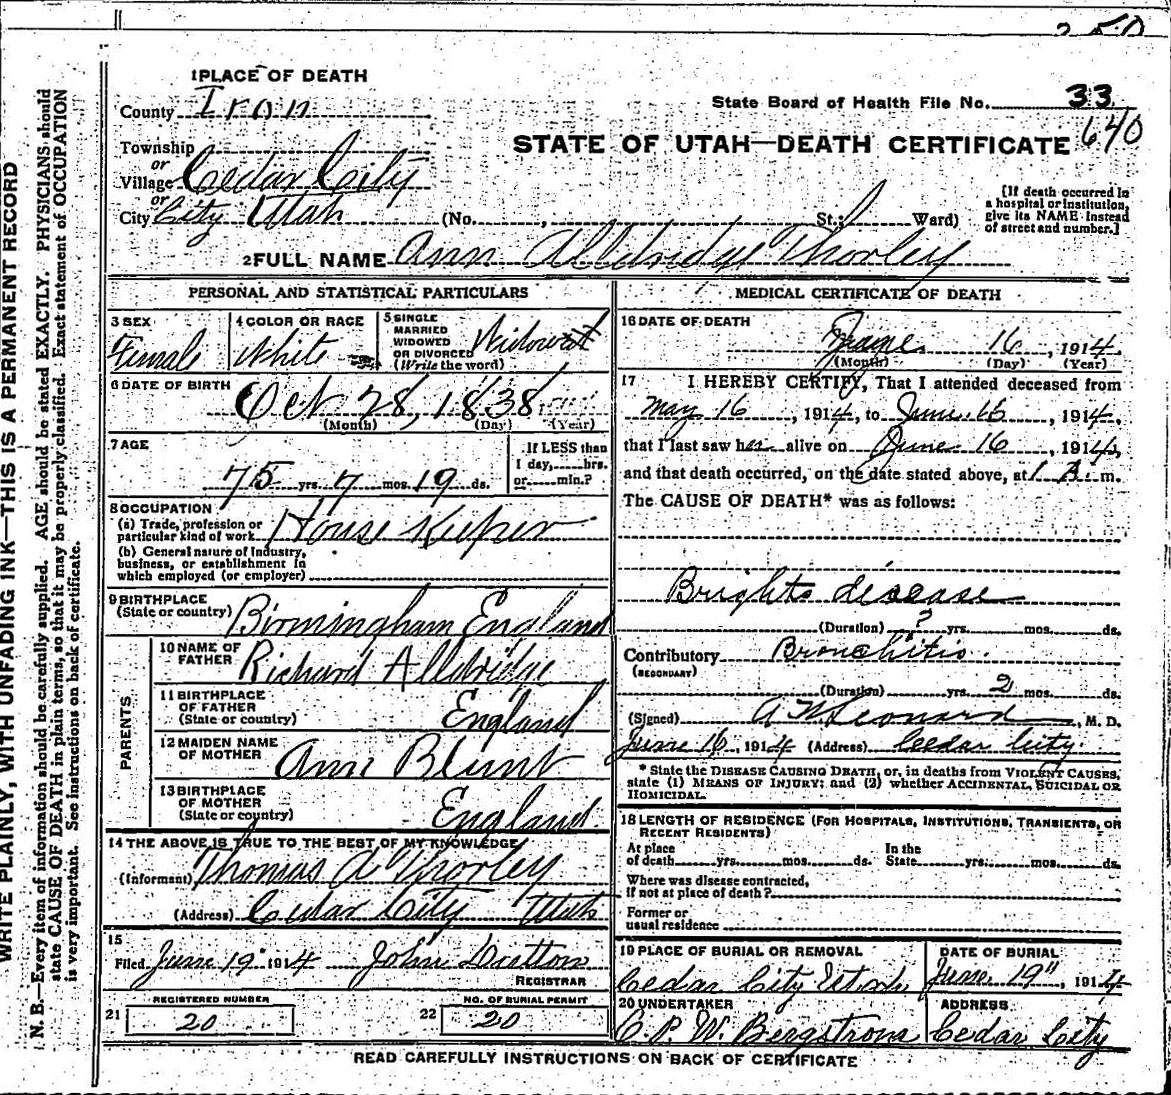 250
1 PLACE OF DEATH
County Iron
State Board of Health File No. 33
640
STATE OF UTAH—DEATH CERTIFICATE
Township
or
Village Cedar City
or
City City Utah (No. , St.; Ward)
[If death occurred in
a hospital or institution,
give its NAME instead
of street and number.]
2 FULL NAME Ann Alldridge Thorley
PERSONAL AND STATISTICAL PARTICULARS
3 SEX
Female
4 COLOR OR RACE
White
5 SINGLE
MARRIED
WIDOWED
OR DIVORCED
(Write the word)
Widowed
6 DATE OF BIRTH
Oct 28, 1838
(Month) (Day) (Year)
7 AGE
75 yrs. 7 mos. 19 ds.
If LESS than
1 day, hrs.
or min.?
8 OCCUPATION
(a) Trade, profession or
particular kind of work House Keeper
(b) General nature of Industry,
business, or establishment in
which employed (or employer)
9 BIRTHPLACE
(State or country) Birmingham England
PARENTS
10 NAME OF
FATHER Richard Alldridge
11 BIRTHPLACE
OF FATHER
(State or country) England
12 MAIDEN NAME
OF MOTHER Ann Blunt
13 BIRTHPLACE
OF MOTHER
(State or country) England
14 THE ABOVE IS TRUE TO THE BEST OF MY KNOWLEDGE
(Informant) Thomas A Thorley
(Address) Cedar City Utah
15
Filed June 19" 1914 John Dutton
REGISTRAR
21 REGISTERED NUMBER
20
22 NO. OF BURIAL PERMIT
20
MEDICAL CERTIFICATE OF DEATH
16 DATE OF DEATH
June 16, 1914
(Month) (Day) (Year)
17 I HEREBY CERTIFY, That I attended deceased from
May 16, 1914, to June 16, 1914,
that I last saw her alive on June 16, 1914,
and that death occurred, on the date stated above, at 1 A. m.
The CAUSE OF DEATH* was as follows:
Brights disease
(Duration) ? yrs. mos. ds.
Contributory Bronchitis.
(SECONDARY)
(Duration) yrs. 2 mos. ds.
(Signed) A N Leonard, M. D.
June 16, 1914 (Address) Ceedar City.
* State the DISEASE CAUSING DEATH, or, in deaths from VIOLENT CAUSES,
state (1) MEANS OF INJURY; and (2) whether ACCIDENTAL, SUICIDAL OR
HOMICIDAL.
18 LENGTH OF RESIDENCE (FOR HOSPITALS, INSTITUTIONS, TRANSIENTS, OR
RECENT RESIDENTS)
At place
of death yrs. mos. ds.
In the
State yrs. mos. ds.
Where was disease contracted,
if not at place of death?
Former or
usual residence
19 PLACE OF BURIAL OR REMOVAL
Cedar City Utah
DATE OF BURIAL
June 19", 1914
20 UNDERTAKER
C. P. W. Bergstrom
ADDRESS
Cedar City
READ CAREFULLY INSTRUCTIONS ON BACK OF CERTIFICATE
WRITE PLAINLY, WITH UNFADING INK—THIS IS A PERMANENT RECORD
N. B.—Every item of information should be carefully supplied. AGE should be stated EXACTLY. PHYSICIANS should
state CAUSE OF DEATH in plain terms, so that it may be properly classified. Exact statement of OCCUPATION
is very important. See instructions on back of certificate.